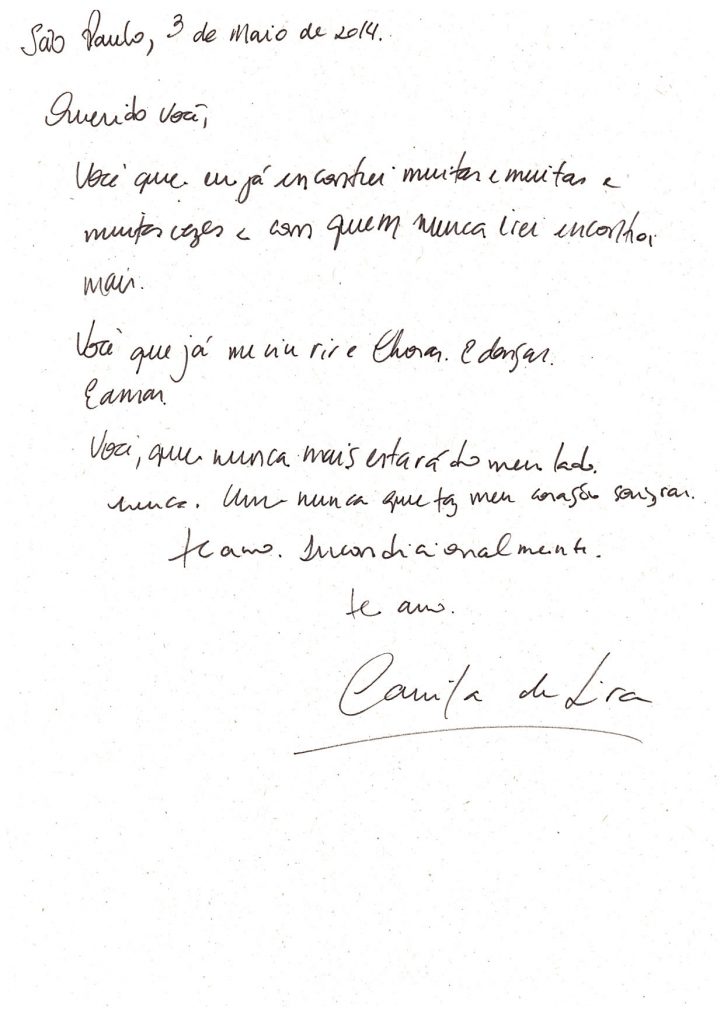 São Paulo, 3 de Maio de 2014.
Querido você,
Você que eu já encontrei muitas e muitas e
muitas vezes e com quem nunca irei encontrar
mais.
Você que já me viu rir e chorar. E dançar.
E amar.
Você, que nunca mais estará do meu lado.
nunca. Um nunca que faz meu coração sangrar.
te amo. Incondicionalmente.
te amo.
Camila de Lira